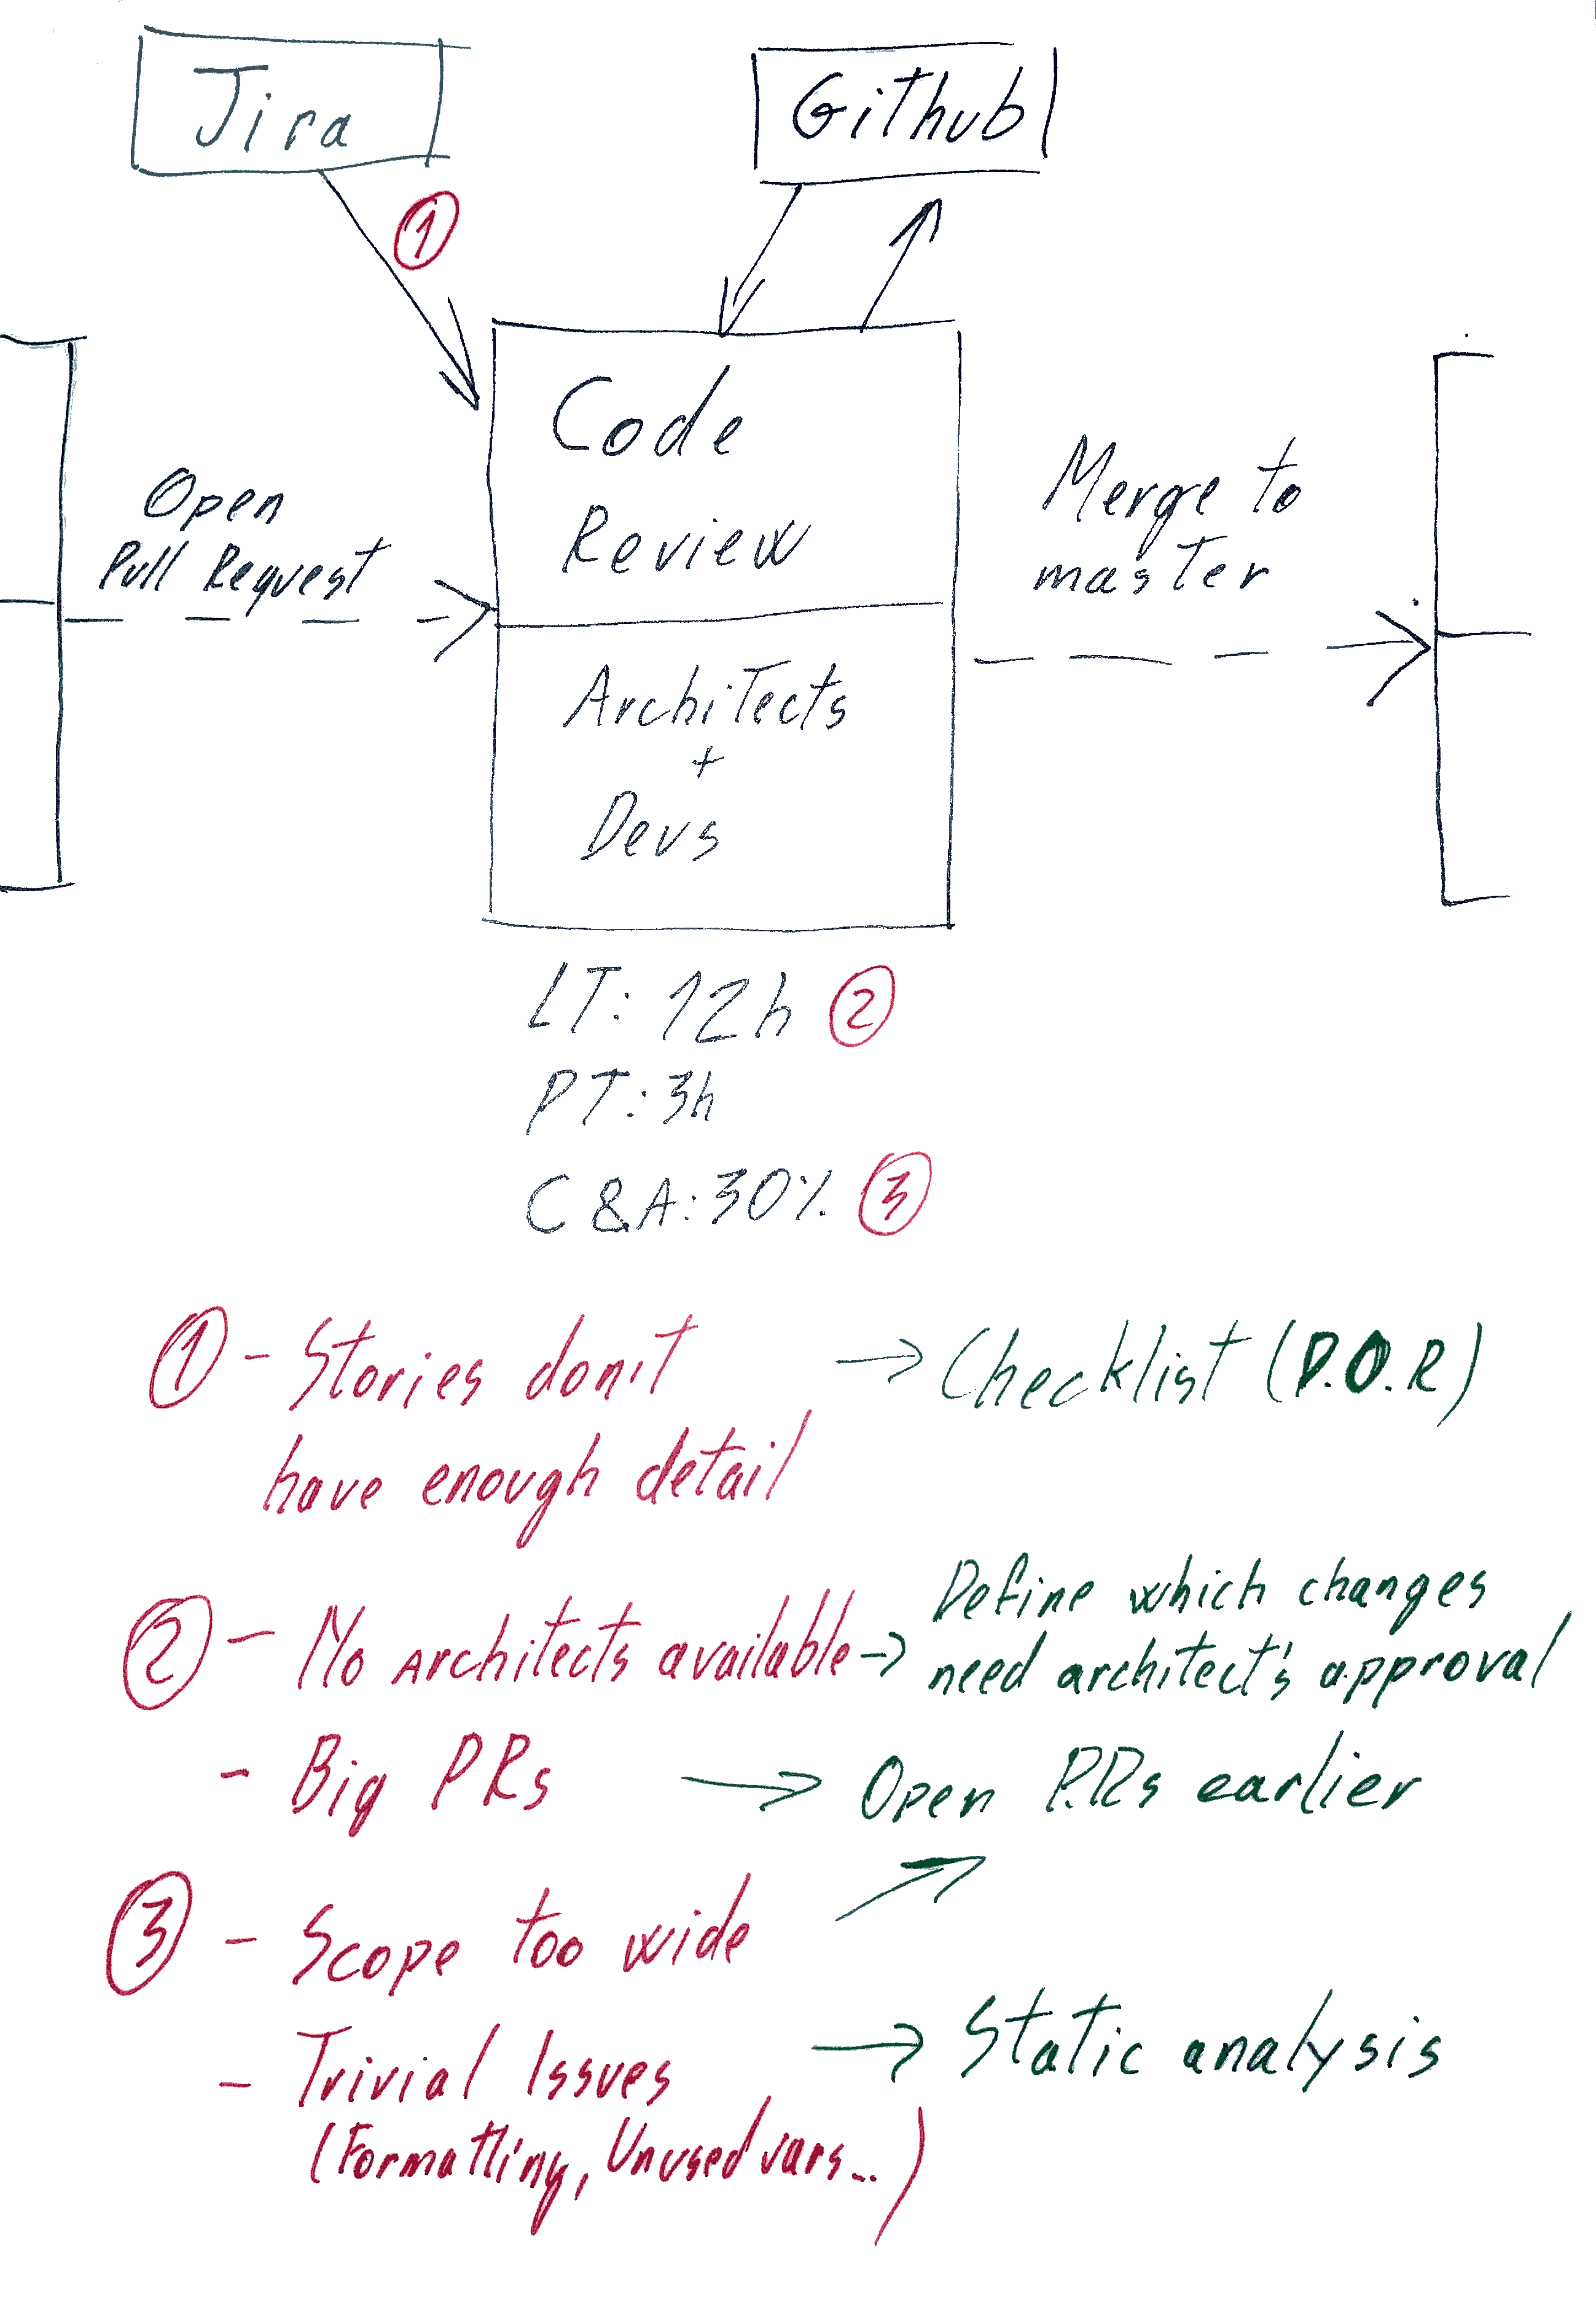 Jira
Github
1
Code
Review
Open
Pull Request
Merge to
master
Architects
+
Devs
LT: 12h 2
PT: 3h
C&A: 30% 3
1 - Stories don't → Checklist (D.O.R)
have enough detail
2 - No Architects available → Define which changes
need architect's approval
- Big PRs → Open PRs earlier
3 - Scope too wide
- Trivial Issues → Static analysis
(Formatting, Unused vars...)